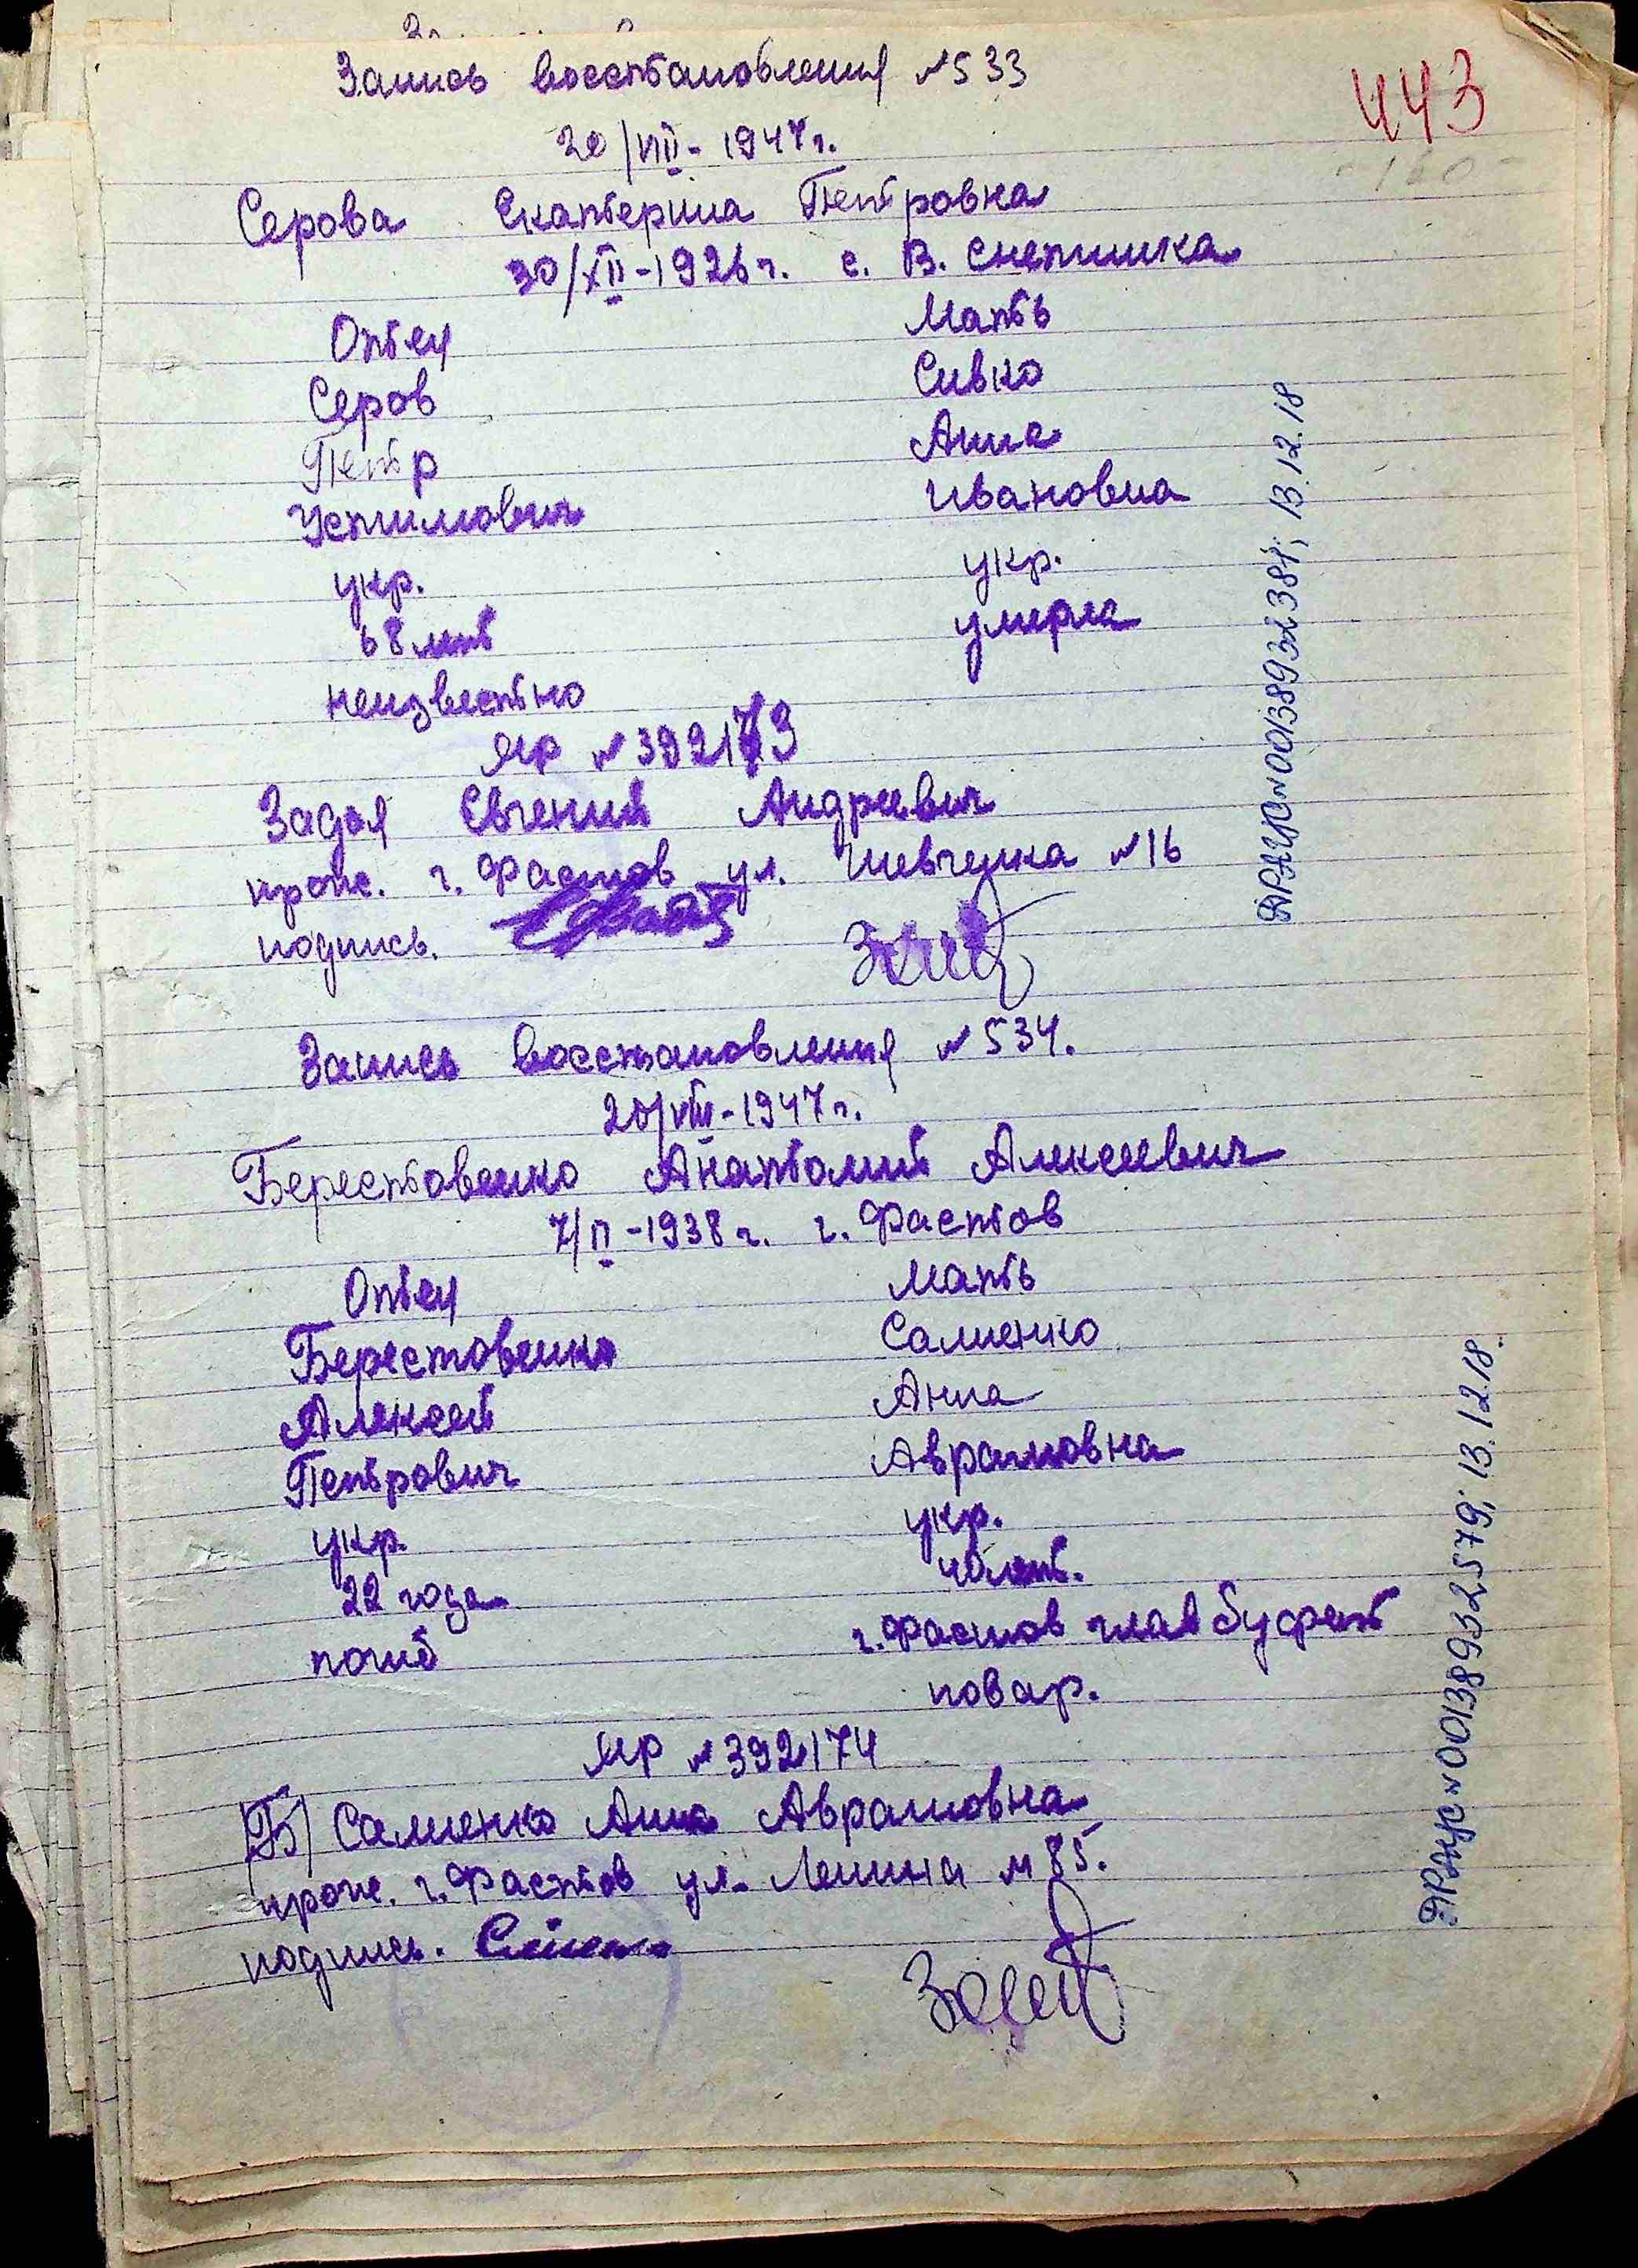 Запись восстановления №533
443
20/VIII-1947г.
Серова Екатерина Петровна
30/XII-1926г. с. В. Снетинка
Отец Мать
Серов Сивко
Петр Анна
Устимович Ивановна
укр. укр.
68 лет умерла
неизвестно
ЯР №392173
Задоя Евгений Андреевич
прож. г. Фастов ул. Шевченка №16
подпись.
ДРАЦС №00138932381; 13.12.18
Запись восстановления №534.
20/VIII-1947г.
Берестовенко Анатолий Алексеевич
7/II-1938г. г. Фастов
Отец Мать
Берестовенко Салиенко
Алексей Анна
Петрович Аврамовна
укр. укр.
22 года 40 лет.
погиб г. Фастов глав буфет
повар.
ЯР №392174
/Б/ Салиенко Анна Аврамовна
прож. г. Фастов ул. Ленина №85.
подпись.
ДРАЦС №00138932579; 13.12.18.